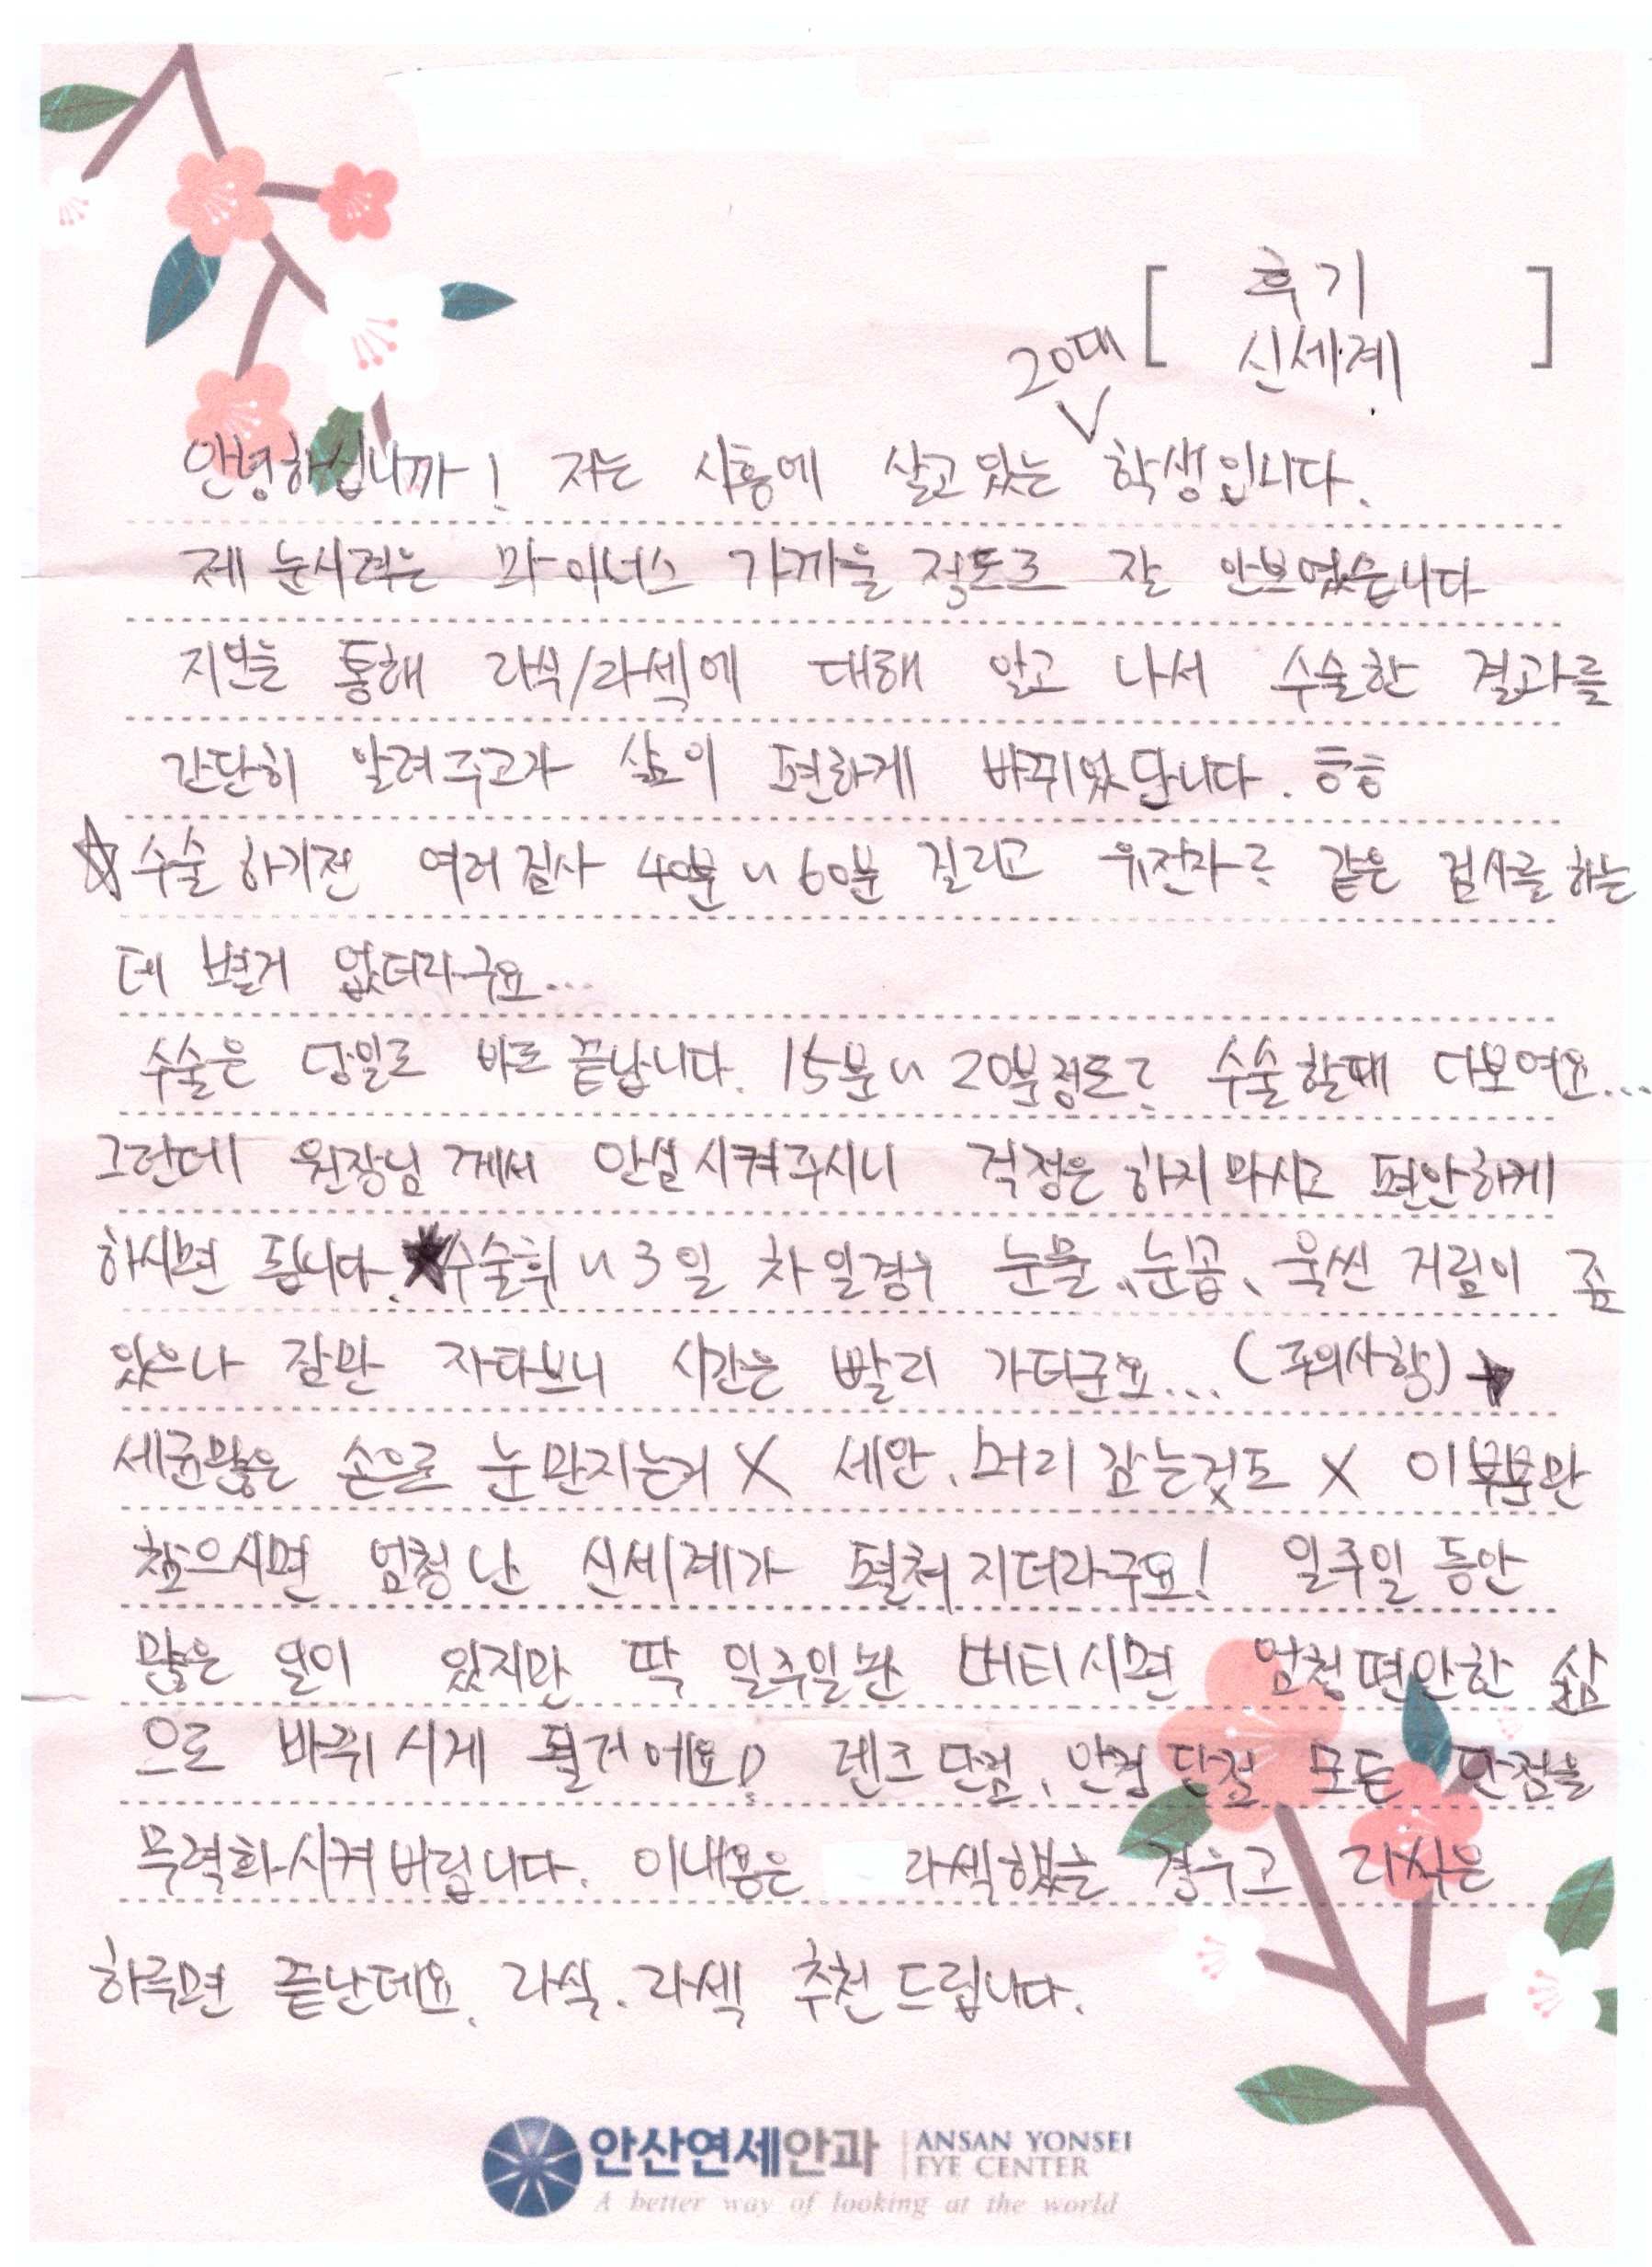 [ 후기
신세계 ]
20대
안녕하십니까! 저는 시흥에 살고있는 ∨ 학생입니다.
제 눈시력은 마이너스 가까울 정도로 잘 안보였습니다
지인을 통해 라식/라섹에 대해 알고 나서 수술한 결과를
간단히 알려주고자 삶이 편하게 바뀌었답니다. ㅎㅎ
☆수술하기전 여러검사 40분~60분 걸리고 유전자? 같은 검사를 하는
데 별거 없더라구요...
수술은 당일로 바로 끝납니다. 15분~20분정도? 수술할때 다보여요...
그런데 원장님께서 안심시켜주시니 걱정은 하지마시고 편안하게
하시면 됩니다. ★수술후~3일 차일경우 눈물、눈꼽、욱씬거림이 좀
있으나 잠만 자다보니 시간은 빨리 가더군요... (주의사항)★
세균많은 손으로 눈만지는거 X 세안、머리 감는것도 X 이부분만
참으시면 엄청난 신세계가 펼쳐지더라구요! 일주일 동안
많은 일이 있지만 딱 일주일만 버티시면 엄청편안한 삶
으로 바뀌시게 될거에요! 렌즈단점、안경단점 모든 단점을
무력화시켜버립니다. 이내용은 라섹했는 경우고 라식은
하루면 끝난데요. 라식.라섹 추천드립니다.
안산연세안과 ANSAN YONSEI
EYE CENTER
A better way of looking at the world